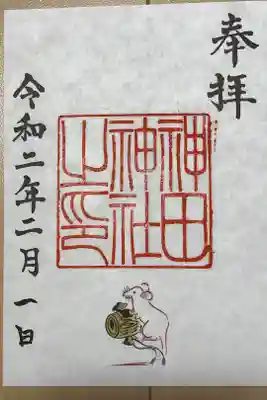 奉拝
神田
神社
之印
令和二年二月一日